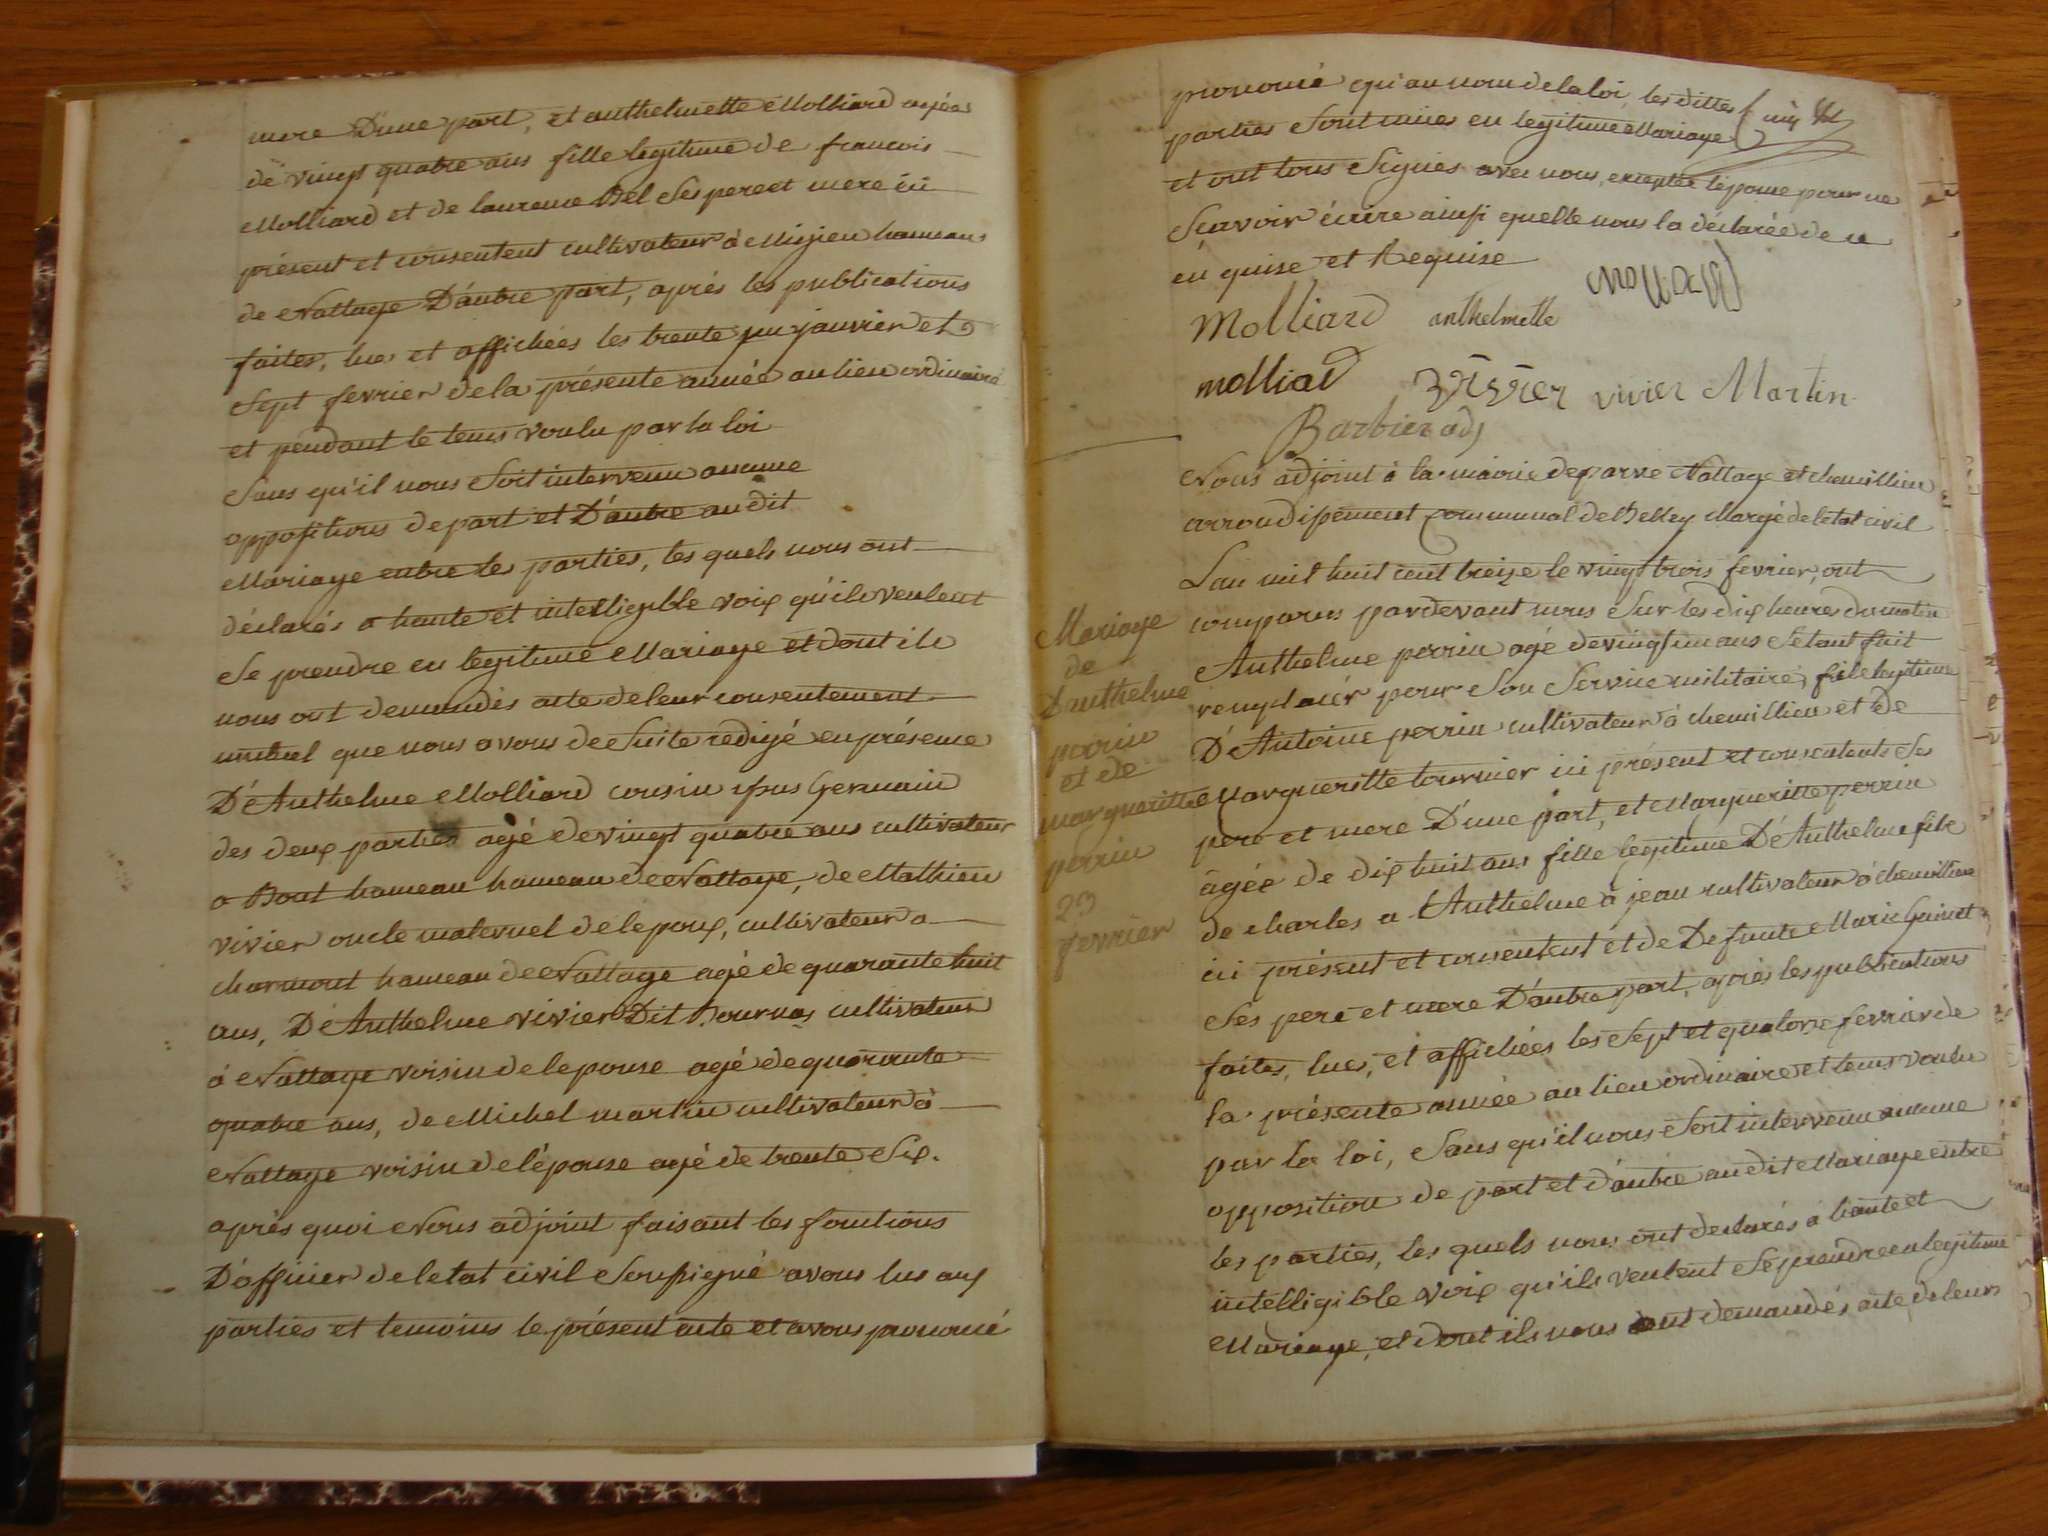 mere D'une part, et anthelmette Molliard agée
de vingt quatre ans fille legitime de francois
Molliard et de laurence Bel Ses pere et mere ici
présent et consentent cultivateur à Migieu hameau
de Nattage D'autre part, après les publications
faites, lues et affichées les trente un janvier et
Sept fevrier de la présente année au lieu ordinaire
et pendant le tems voulu par la loi
Sans qu'il nous Soit intervenu aucune
oppositions de part et D'autre au dit
Mariage entre les parties, les quels nous ont
déclarés a haute et intelligible voix qu'ils veulent
Se prendre en legitime Mariage et dont ils
nous ont demandés acte de leur consentement
mutuel que nous avons de Suite redigé en présence
D'Anthelme Molliard cousin issus Germain
des deux parties agé de vingt quatre ans cultivateur
a Bout hameau hameau de Nattage, de Mathieu
vivier oncle maternel de lepoux, cultivateur a
charmont hameau de Nattage agé de quarante huit
ans, D'Anthelme vivier Dit Bournas cultivateur
à Nattage voisin de lepouse agé de quarante
quatre ans, de Michel martin cultivateur à
Nattage voisin de l'épouse agé de trente Six.
après quoi Nous adjoint faisant les fonctions
D'officier de letat civil Soussigné avons lus aux
parties et temoins le présent acte et avons prononcé
prononcé qu'au nom de la loi, les dittes
parties Sont unies en legitime Mariage
et ont tous Signés avec nous, exceptée lépouse pour ne
Scavoir écrire ainsi quelle nous la déclarée de ce
en quise et Requise
Molliard anthelmette
molliard vivier vivier Martin
Barbier adj
Nous adjoint à la mairie de parve Nattage et chemillieu
arrondissement communal de Belley chargé de letat civil
Mariage
de
D'anthelme
perrin
et de
margueritte
perrin
23
fevrier
Lan mil huit cent treize le vingt trois fevrier, ont
comparus pardevant nous Sur les dix heures du matin
Anthelme perrin agé de vingt un ans Setant fait
remplacér pour Son Service militaire, fils legitime
D'Antoine perrin cultivateur à chemillieu et de
Margueritte tournier ici présent et consentents Ses
pere et mere D'une part, et Margueritte perrin
âgée de dix huit ans fille legitime D'Anthelme fils
de charles a Anthelme à jean cultivateur à chemillieu
ici présent et consentent et de Defunte Marie Guinet
Ses pere et mere D'autre part, après les publications
faites, lues, et affichées les Sept et quatorze fevrier de
la présente année au lieu ordinaire et tems voulu
par la loi, Sans qu'il nous Soit intervenu aucune
opposition de part et d'autre au dit Mariage entre
les parties, les quels nous ont declarés à haute et
intelligible voix qu'ils veulent Se prendre en legitime
Mariage, et dont ils nous ont demandés acte de leurs